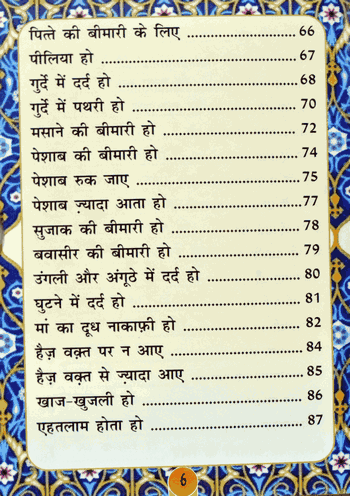 पित्ते की बीमारी के लिए ........................ 66
पीलिया हो ........................................ 67
गुर्दे में दर्द हो ..................................... 68
गुर्दे में पथरी हो ................................... 70
मसाने की बीमारी हो ............................ 72
पेशाब की बीमारी हो ............................ 74
पेशाब रुक जाए .................................. 75
पेशाब ज़्यादा आता हो .......................... 77
सुजाक की बीमारी हो ........................... 78
बवासीर की बीमारी हो .......................... 79
उंगली और अंगूठे में दर्द हो .................... 80
घुटने में दर्द हो .................................... 81
मां का दूध नाकाफ़ी हो ......................... 82
हैज़ वक़्त पर न आए ........................... 84
हैज़ वक़्त से ज़्यादा आए ....................... 85
खाज-खुजली हो .................................. 86
एहतलाम होता हो ................................ 87
6